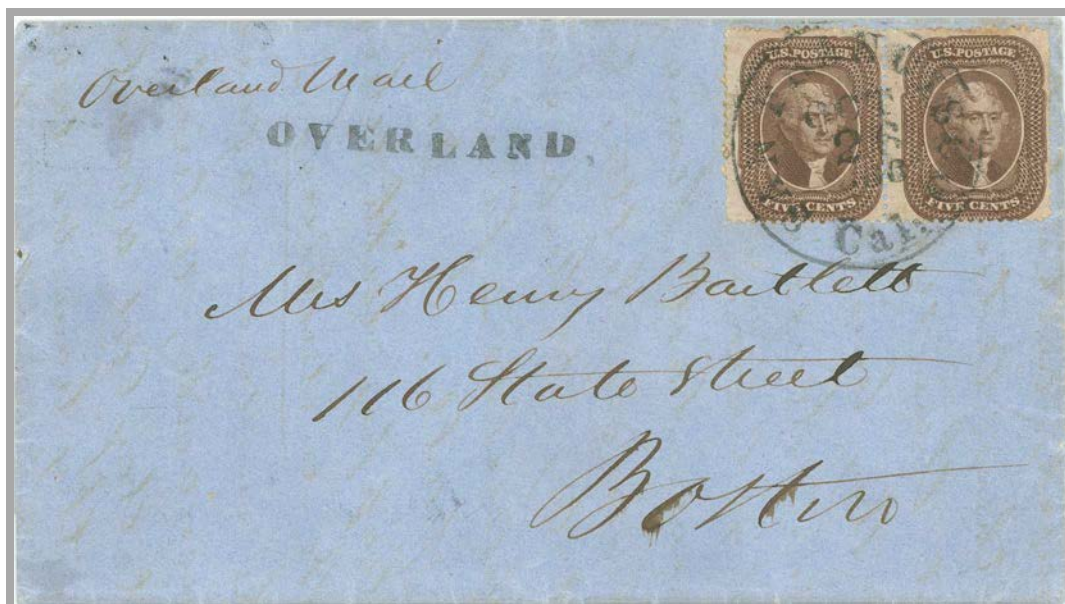 Overland Mail
OVERLAND,
U.S. POSTAGE
FIVE CENTS
U.S. POSTAGE
FIVE CENTS
2
Cal.
Mrs Henry Bartlett
116 State Street
Boston